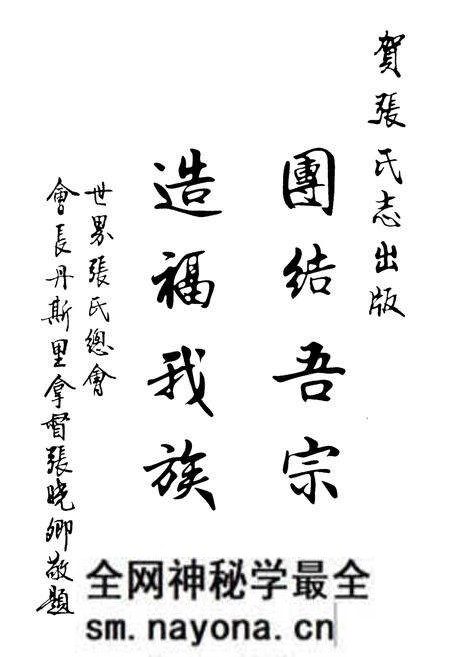 賀張氏志出版
團結吾宗
造福我族
世界張氏總會
會長丹斯里拿督張曉卿敬題
全网神秘学最全
sm.nayona.cn